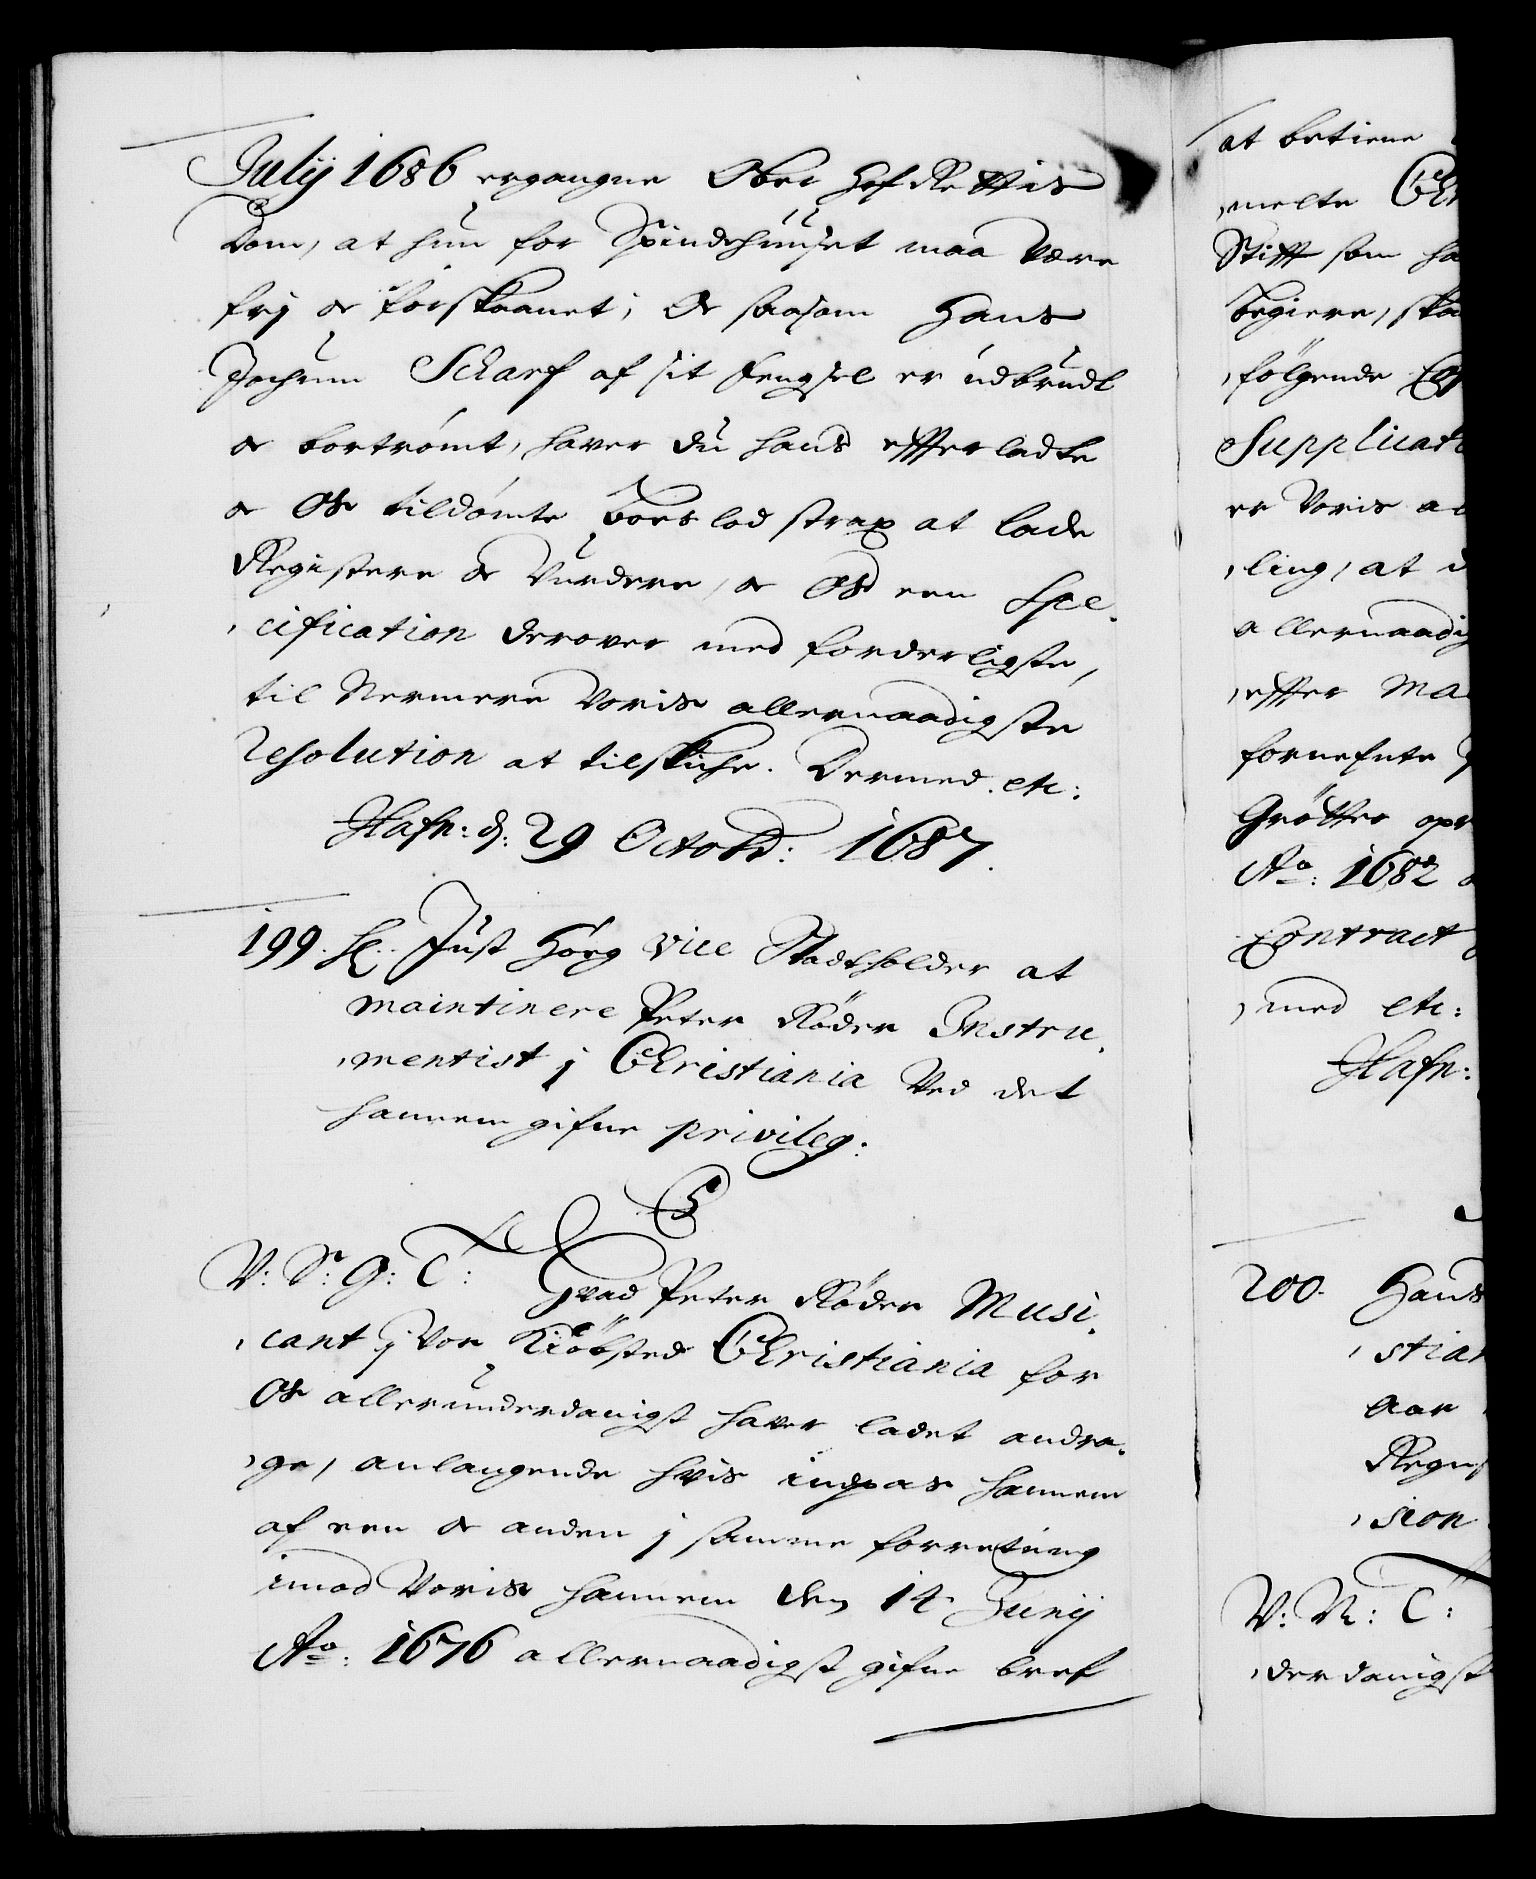 Julij 1686 ergangne Ober Hof Rettis
Dom, at hun for Spindehuuset maa være
frj oc forskaanet; Oc saasom Hans
Jochum Scharf af sit fengsel er udbrudt
oc bortrømt, haver du hans effterladte
oc Os tildømte Boeslod strax at lade
Registere oc Vurdere, oc Os een Spe-
cification derover med forderligste,
til Nermere Voris allernaadigste
resolution at tilskiche. Dermed etc:
Hafn: d: 29 Octobr: 1687.
199. Hr. Just Høeg vice Stadtholder at
maintinere Peter Røder Instru-
mentist j Christiania Ved det
hannem gifne privileg:
C5
V: Sr: G: T: Hvad Peter Røder Musi-
cant j Vor Kiøbsted Christiania for
Os allerunderdanigst haver ladet andra-
ge, anlangende hvis indpas hannem
af een oc anden j samme forretning
imod Voris hannem den 14 Junij
Ao: 1676 allernaadigst gifne bref
at betiene
melte
Stift som
begiere,
følgende
er Voris
ling, at
allernaadig
effter
fornefnte
Grøtter
Ao: 1682
Contract
med etc:
Hafn:
200. Hans
stian
Aar
sion
V: M: T:
derdanigst